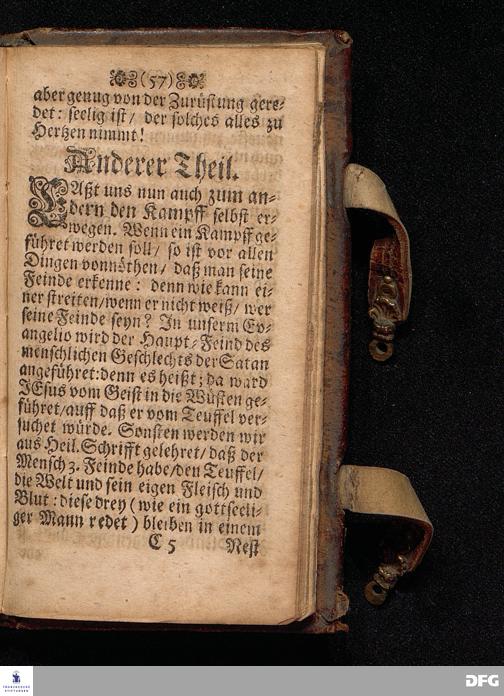 (57)
aber genug von der Zurüstung gere-
det: seelig ist/ der solches alles zu
Hertzen nimmt!
Anderer Theil.
LAßt uns nun auch zum an-
dern den Kampff selbst er-
wegen. Wenn ein Kampff ge-
führet werden soll/ so ist vor allen
Dingen vonnöthen/ daß man seine
Feinde erkenne: denn wie kann ei-
ner streiten/ wenn er nicht weiß/ wer
seine Feinde seyn? In unserm Ev-
angelio wird der Haupt-Feind des
menschlichen Geschlechts der Satan
angeführet: denn es heißt; da ward
JEsus vom Geist in die Wüsten ge-
führet/ auff daß er vom Teuffel ver-
suchet würde. Sonsten werden wir
aus Heil. Schrifft gelehret/ daß der
Mensch 3. Feinde habe/ den Teuffel/
die Welt und sein eigen Fleisch und
Blut: diese drey (wie ein gottseeli-
ger Mann redet) bleiben in einem
C 5 Nest
FRANCKESCHE
STIFTUNGEN
DFG